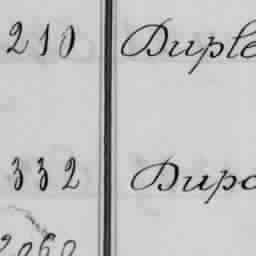 210 Duple
332 Dupo
2060